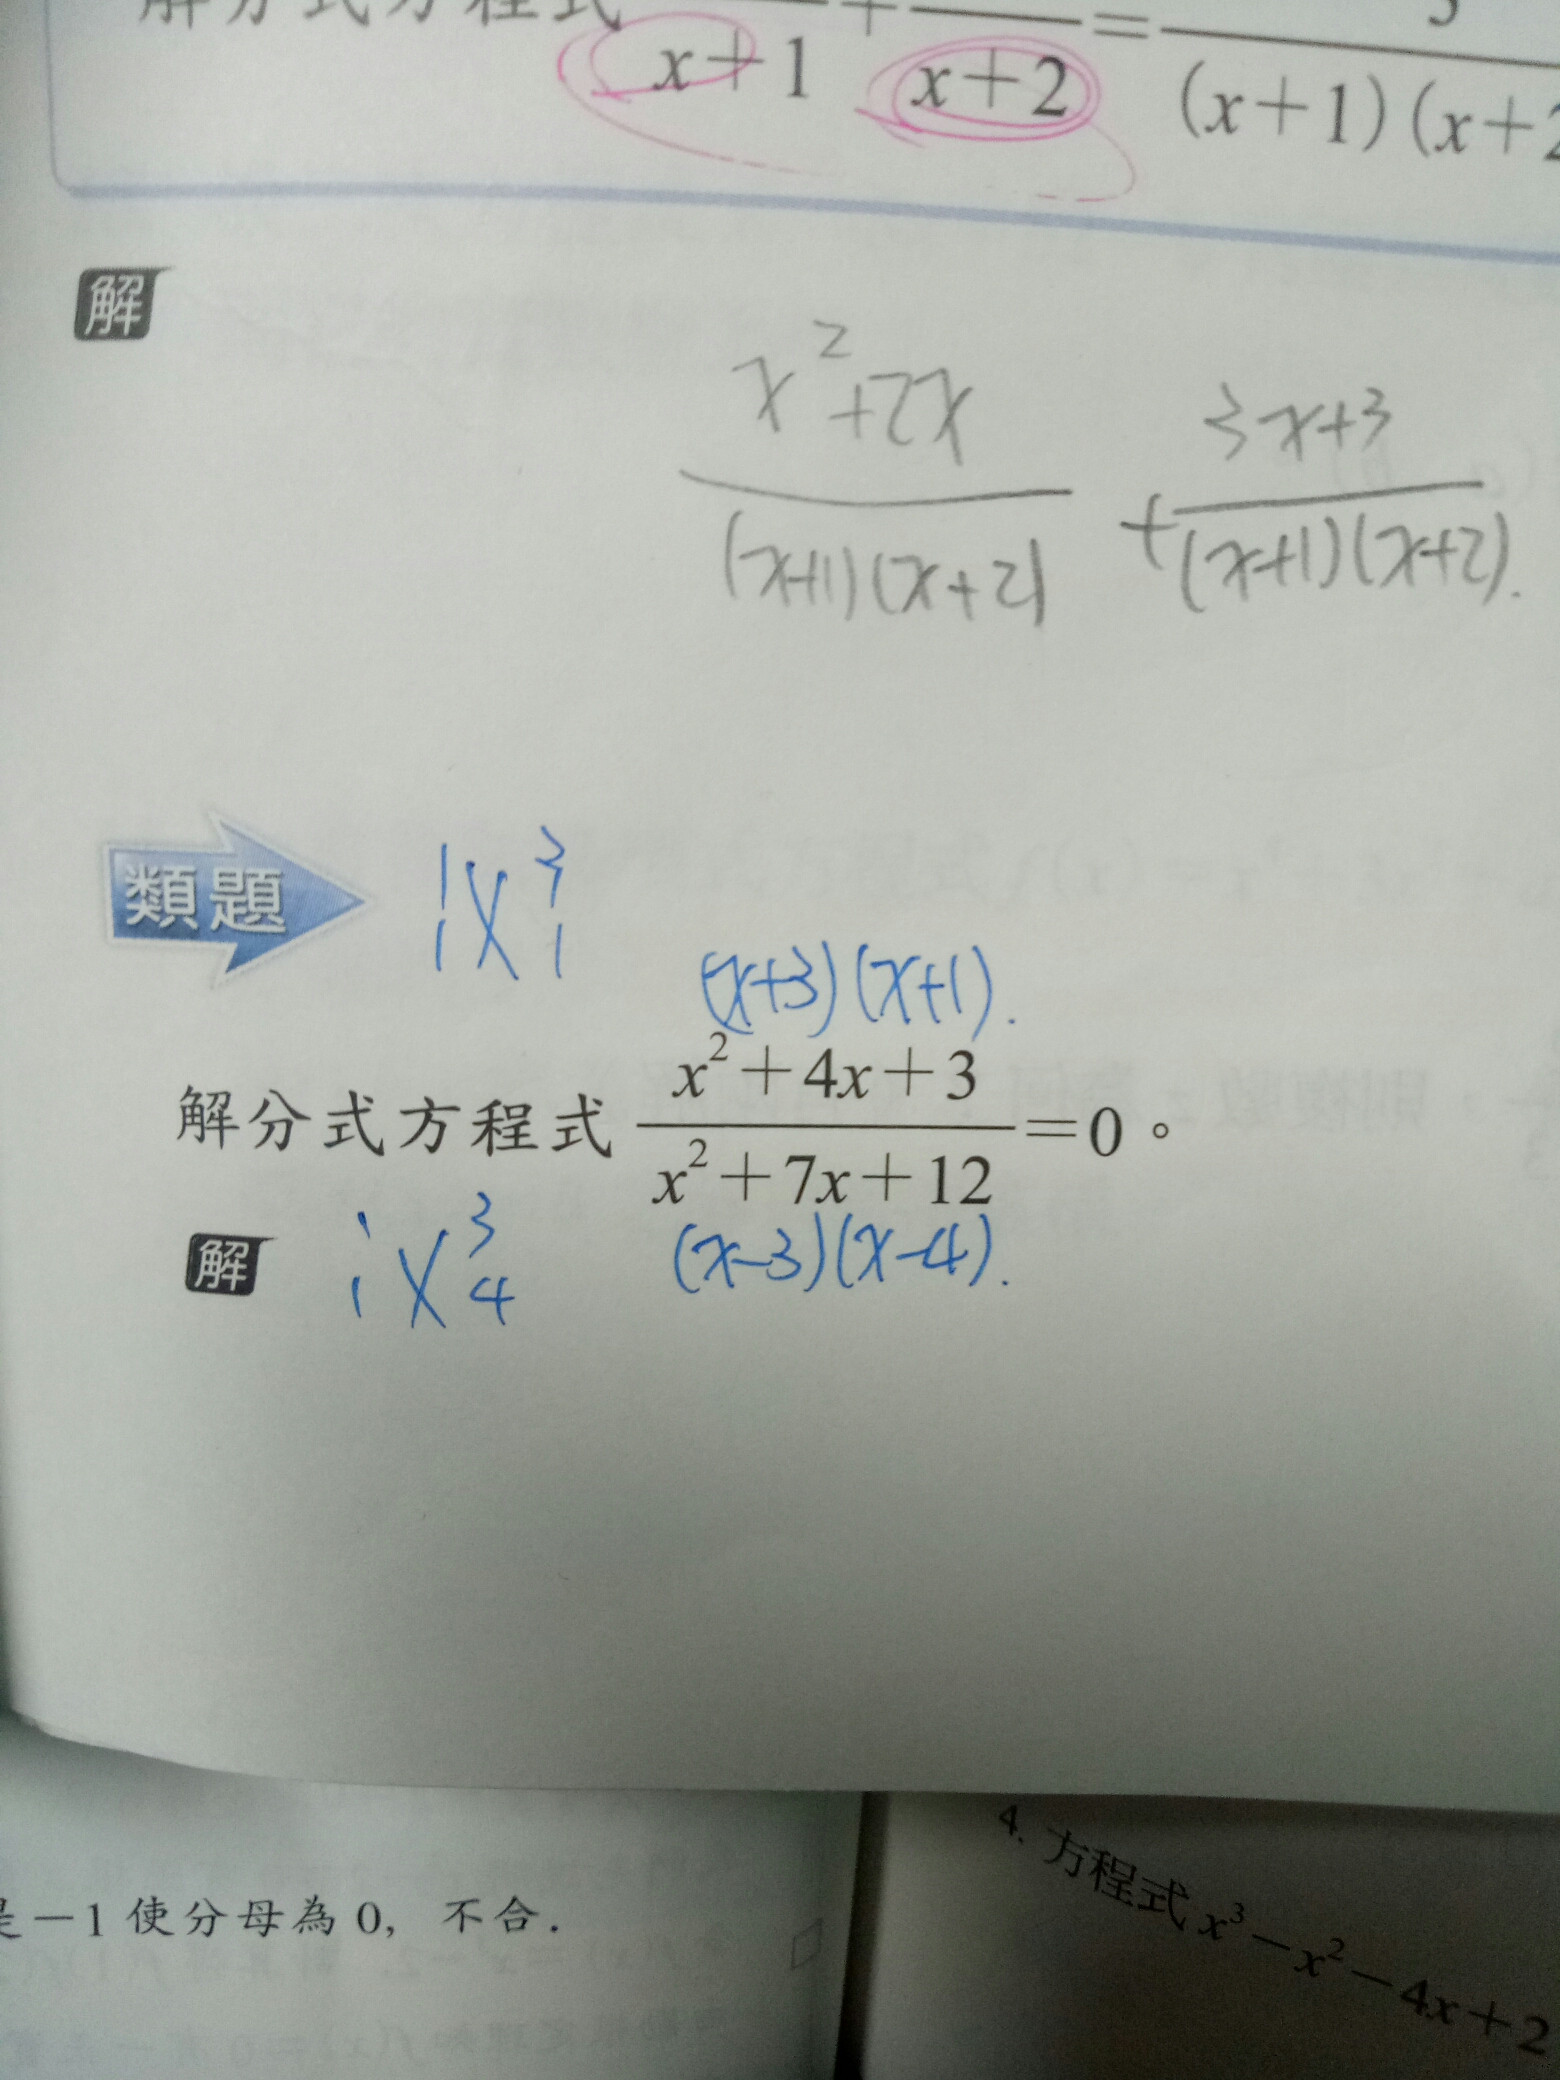 解分式方程式 x+1 + x+2 = (x+1)(x+2
解
x²+2x / (x+1)(x+2) + 3x+3 / (x+1)(x+2).
類題
1 3
1 1
(x+3)(x+1).
解分式方程式 x²+4x+3 / x²+7x+12 =0。
解
1 3
1 4
(x-3)(x-4).
是－1使分母為0, 不合.
4. 方程式 x³－x²－4x＋2